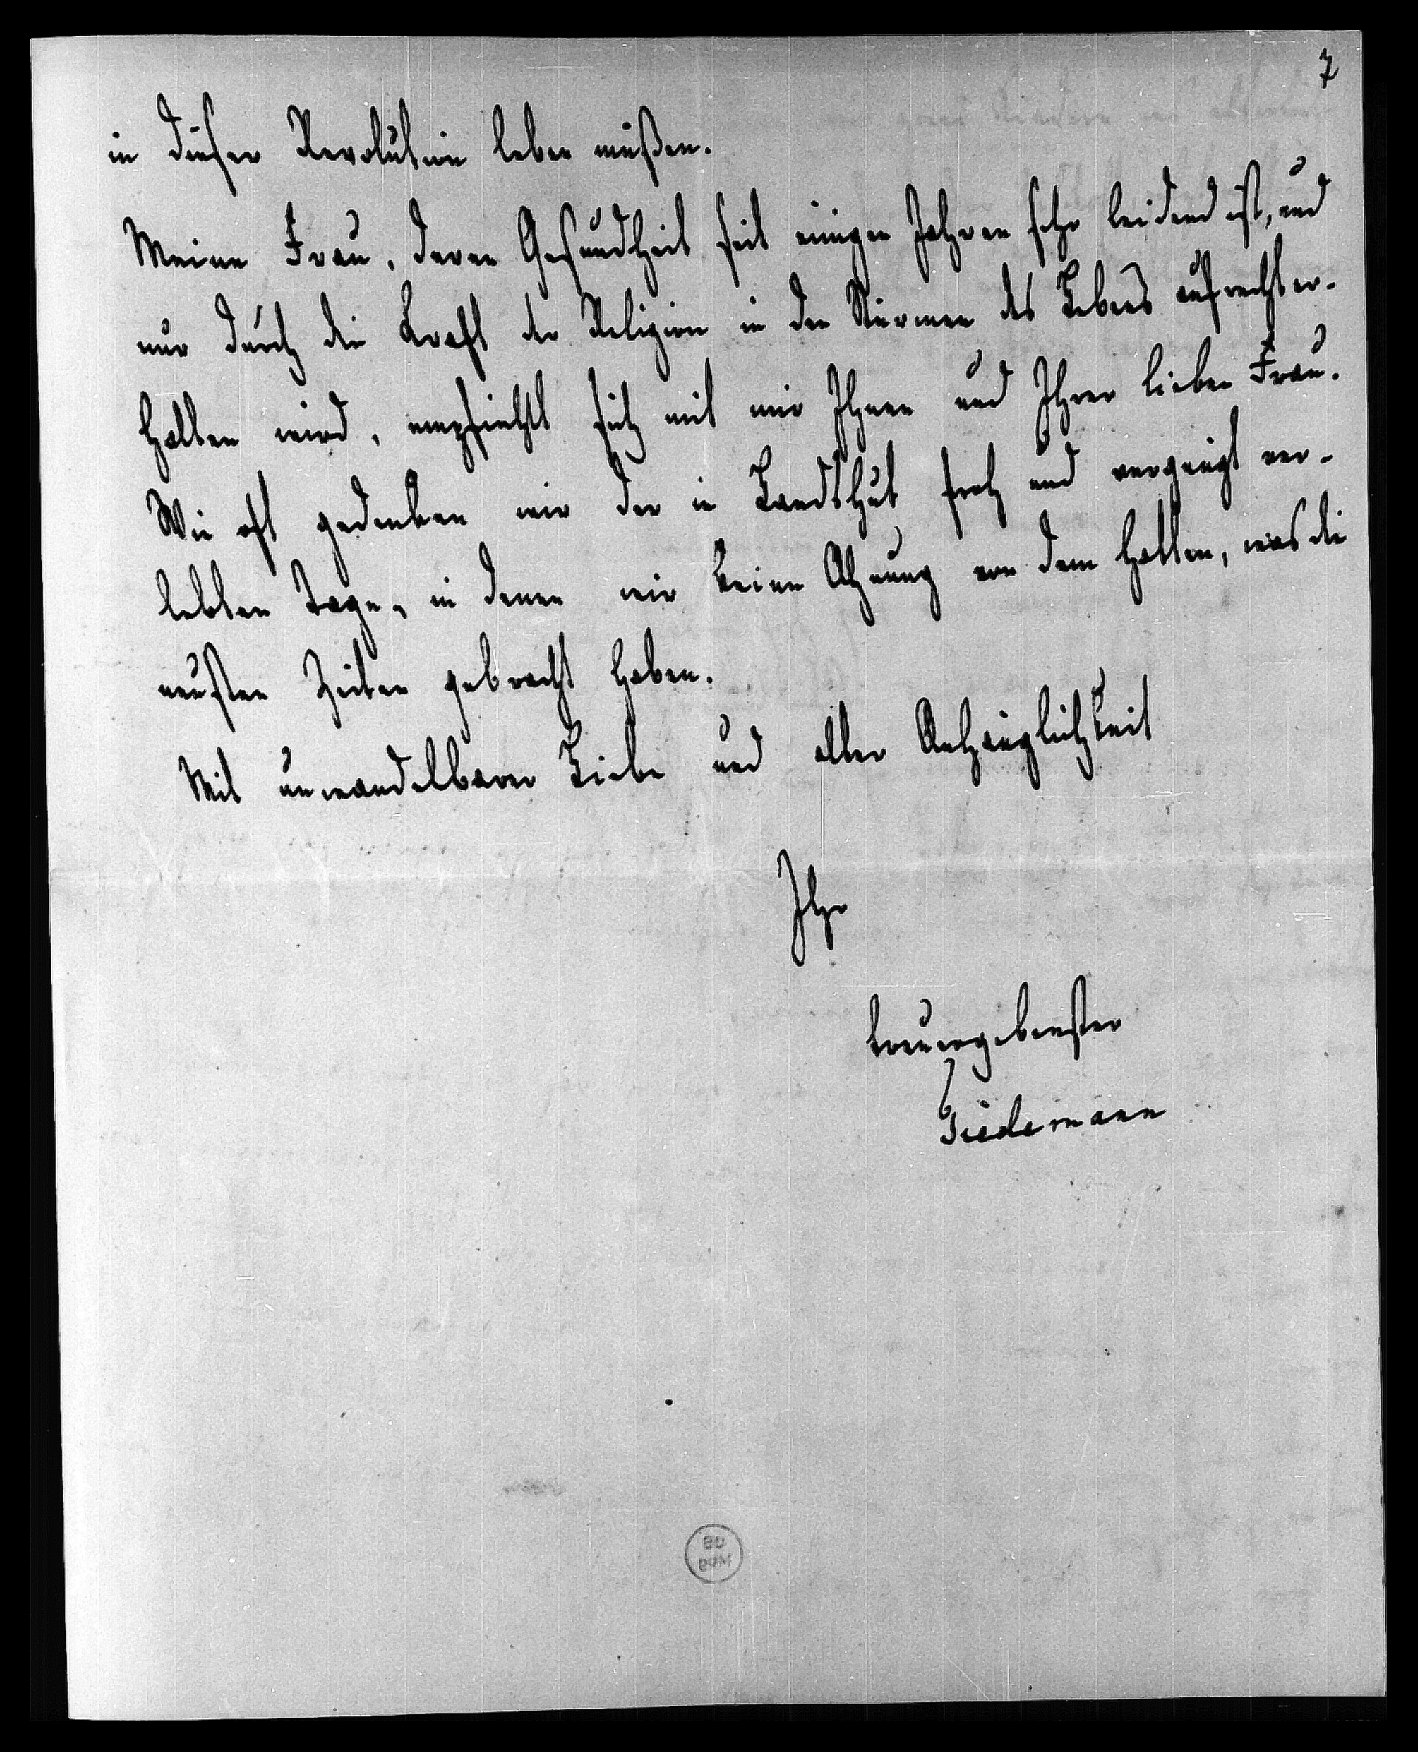 7
in dieser Revolution leben müßen.
Meine Frau, deren Gesundheit seit einigen Jahren sehr leidend ist, und
nur durch die Kraft der Religion in den Stürmen des Lebens aufrecht er-
halten wird, empfiehlt sich mit mir Ihnen und Ihrer lieben Frau.
Wie oft gedenken wir der in Landshut froh und vergnügt ver-
lebten Tage, in denen wir keine Ahnung von dem hatten, was die
neusten Zeiten gebracht haben.
Mit unwandelbarer Liebe und alter Anhänglichkeit
Ihr
treuergebenster
Tiedemann